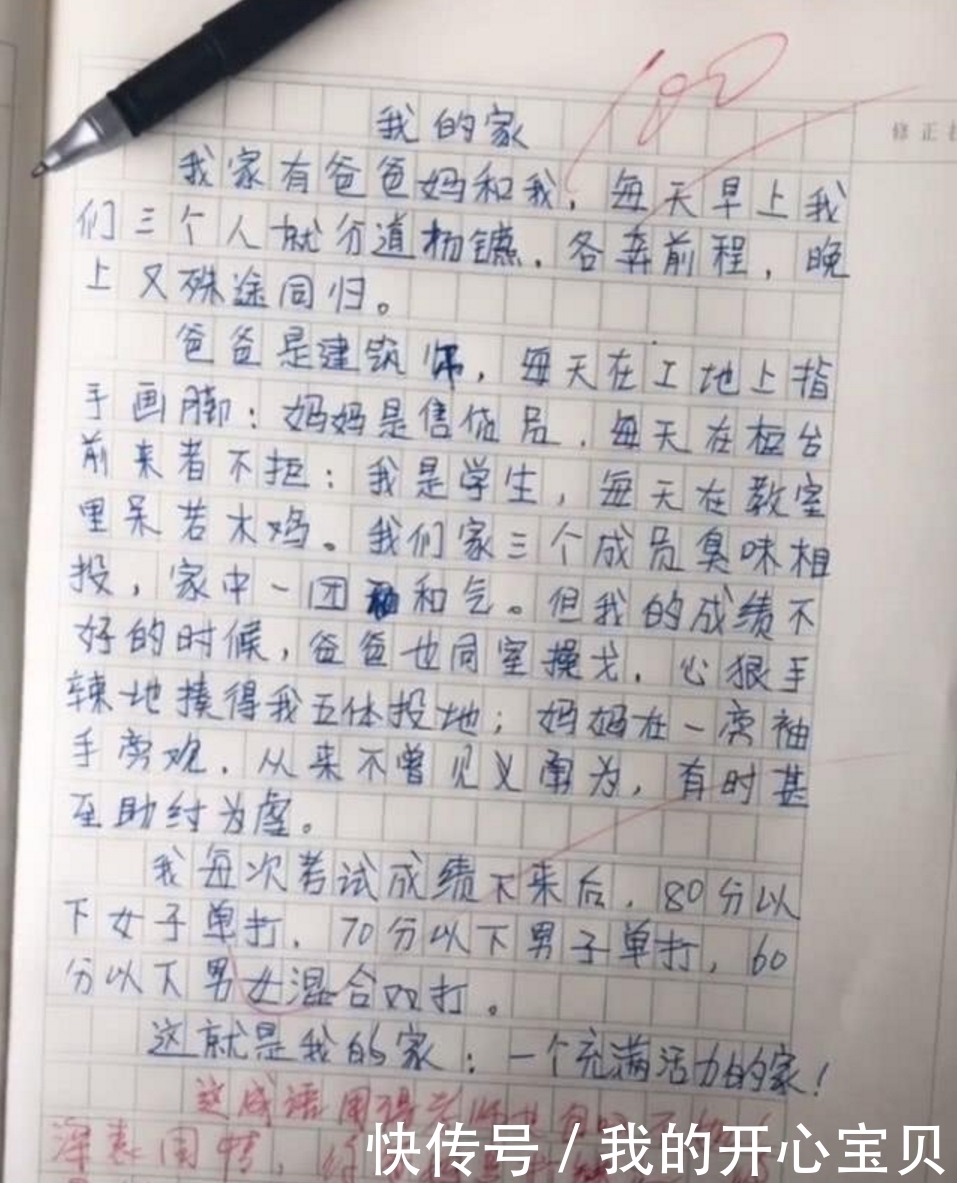 100
修正
我的家
我家有爸爸妈和我，每天早上我
们三个人就分道杨镳，各奔前程，晚
上又殊途同归。
爸爸是建筑师，每天在工地上指
手画脚；妈妈是售货员，每天在柜台
前来者不拒；我是学生，每天在教室
里呆若木鸡。我们家三个成员臭味相
投，家中一团和气。但我的成绩不
好的时候，爸爸也同室操戈，心狠手
辣地揍得我五体投地；妈妈在一旁袖
手旁观，从来不曾见义勇为，有时甚
至助纣为虐。
我每次考试成绩下来后，80分以
下女子单打，70分以下男子单打，60
分以下男女混合双打。
这就是我的家；一个充满活力的家！
这成语用得老师
深表同情，
快传号/我的开心宝贝